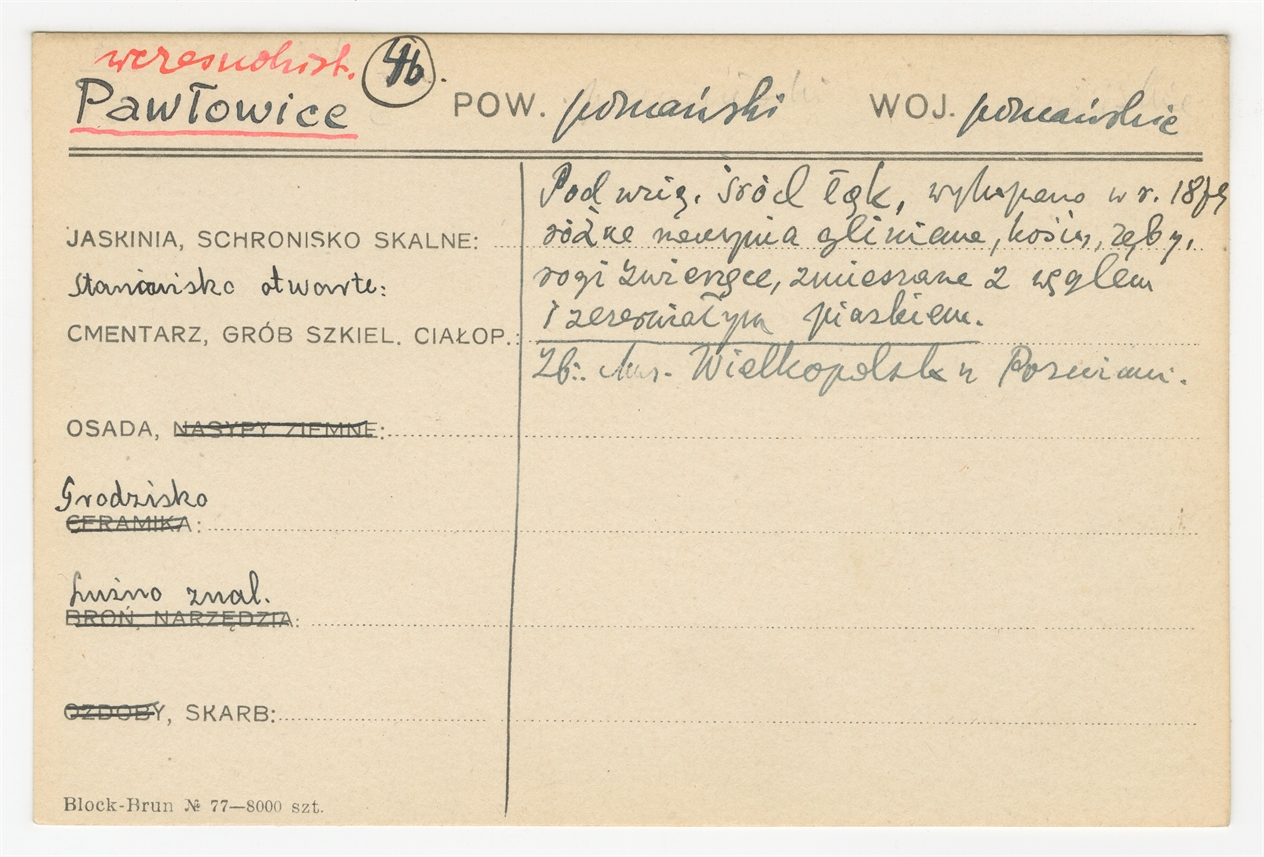 wczesnohist. 4b.
Pawłowice POW. poznański WOJ. poznańskie
Pod wsią, śród łąk, wykopano w r.
JASKINIA, SCHRONISKO SKALNE: różne naczynia gliniane, kości, zęby,
Stanowisko otwarte: rogi zwierzęce, zmieszane z węglem
CMENTARZ, GRÓB SZKIEL. CIAŁOP.: i piaskiem.
Zb. Muz. Wielkopolsk w Poznaniu.
OSADA, NASYPY ZIEMNE:
Grodzisko
CERAMIKA:
Luźno znal.
BROŃ, NARZĘDZIA:
OZDOBY, SKARB:
Block-Brun № 77—8000 szt.